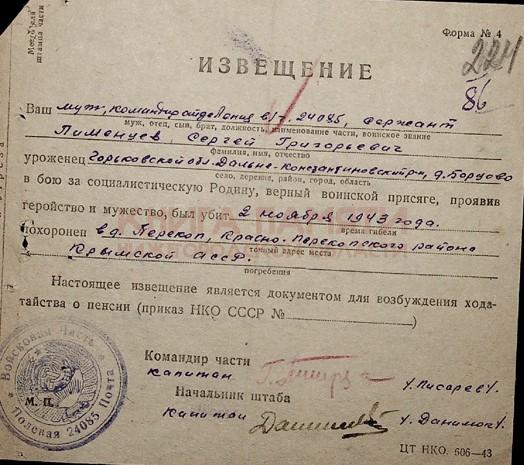 Место для
штампа части
Форма № 4
224
86
ИЗВЕЩЕНИЕ
Ваш муж, командир отделения в/ч-24085, сержант
муж, отец, сын, брат, должность, наименование части, воинское звание
Сергей Григорьевич
фамилия, имя, отчество
уроженец Горьковской обл. Дальне-Константиновский р-н, д. Бордово
село, деревня, район, город, область
в бою за социалистическую Родину, верный воинской присяге, проявив
геройство и мужество, был убит 2 ноября 1943 года.
время гибели
похоронен в д. Перекоп, Красно-Перекопского района
точный адрес места
Крымской АССР.
погребения
Настоящее извещение является документом для возбуждения хода-
тайства о пенсии (приказ НКО СССР № )
Командир части
капитан /Писарев/.
Начальник штаба
капитан /Данилюк/
М. П.
Войсковая Часть
Полевая 24085 Почта
ЦТ НКО. 606—43